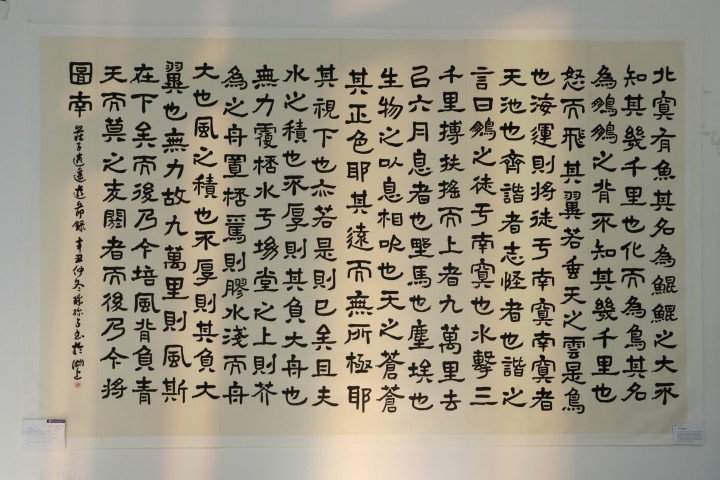 北冥有魚其名為鯤鯤之大不
知其幾千里也化而為鳥其名
為鵬鵬之背不知其幾千里也
怒而飛其翼若垂天之雲是鳥
也海運則將徙于南冥南冥者
天池也齊諧者志怪者也諧之
言曰鵬之徙于南冥也水擊三
千里摶扶搖而上者九萬里去
以六月息者也野馬也塵埃也
生物之以息相吹也天之蒼蒼
其正色耶其遠而無所極耶
其視下也亦若是則已矣且夫
水之積也不厚則其負大舟也
無力覆桮水于坳堂之上則芥
為之舟置桮焉則膠水淺而舟
大也風之積也不厚則其負大
翼也無力故九萬里則風斯
在下矣而後乃今培風背負青
天而莫之夭閼者而後乃今將
圖南 莊子逍遙遊節錄 辛丑仲冬